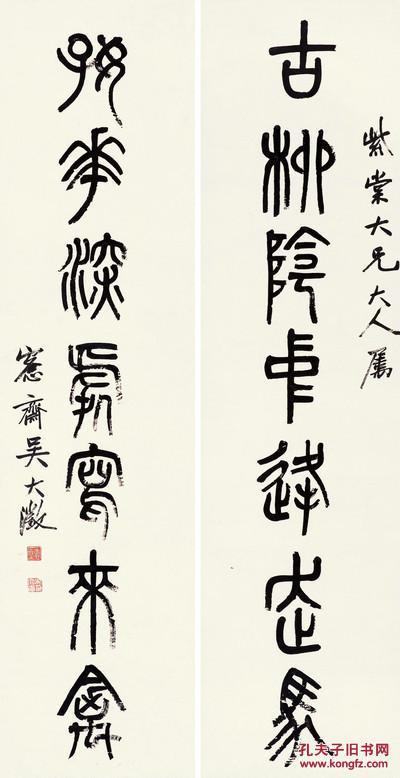 紫棠大兄大人屬
古柳陰中逢走馬
好華深處寫來禽
愙齋吳大澂
孔夫子旧书网
www.kongfz.com